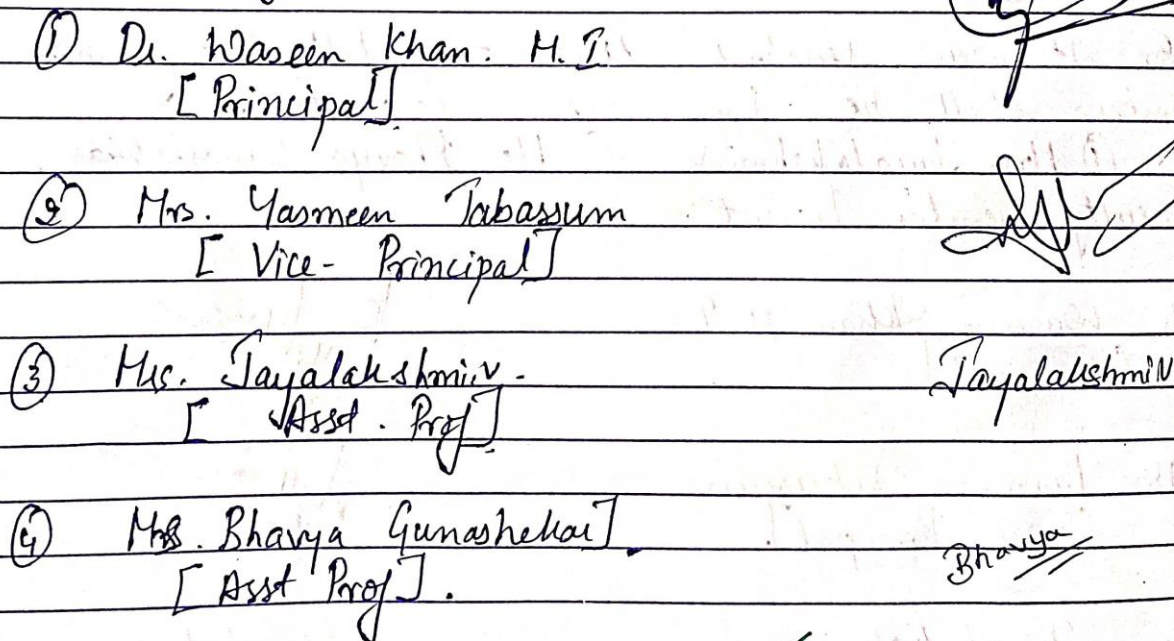 ① Dr. Waseen Khan. M. I.
[Principal].
② Mrs. Yasmeen Tabassum
[Vice- Principal]
③ Mrs. Jayalakshmi.v. JayalakshmiN
[Asst. Prof].
④ Mrs. Bhavya Gunashekar]. Bhavya
[Asst Prof].